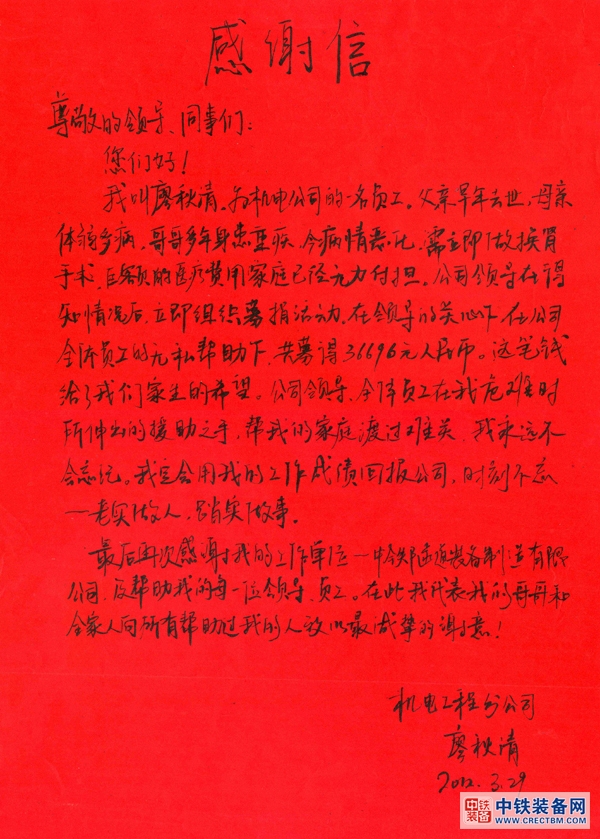 感谢信
尊敬的领导、同事们：
您们好！
我叫廖秋清，为机电公司的一名员工。父亲早年去世，母亲
体弱多病，哥哥多年身患重疾，今病情恶化，需立即做换肾
手术，巨额的医疗费用家庭已经无力付担。公司领导在得
知情况后，立即组织募捐活动，在领导的关心下，在公司
全体员工的无私帮助下，共募得36696元人民币。这笔钱
给了我们家生的希望。公司领导、全体员工在我危难时
所伸出的援助之手，帮我的家庭渡过难关，我永远不
会忘记。我定会用我的工作成绩回报公司，时刻不忘
—老实做人，踏实做事。
最后再次感谢我的工作单位—中铁隧道装备制造有限
公司，及帮助我的每一位领导、员工。在此我代表我的哥哥和
全家人向所有帮助过我的人致以最诚挚的谢意！
机电工程分公司
廖秋清
2012.3.29
中铁装备 中铁装备网
WWW.CRECTBM.COM